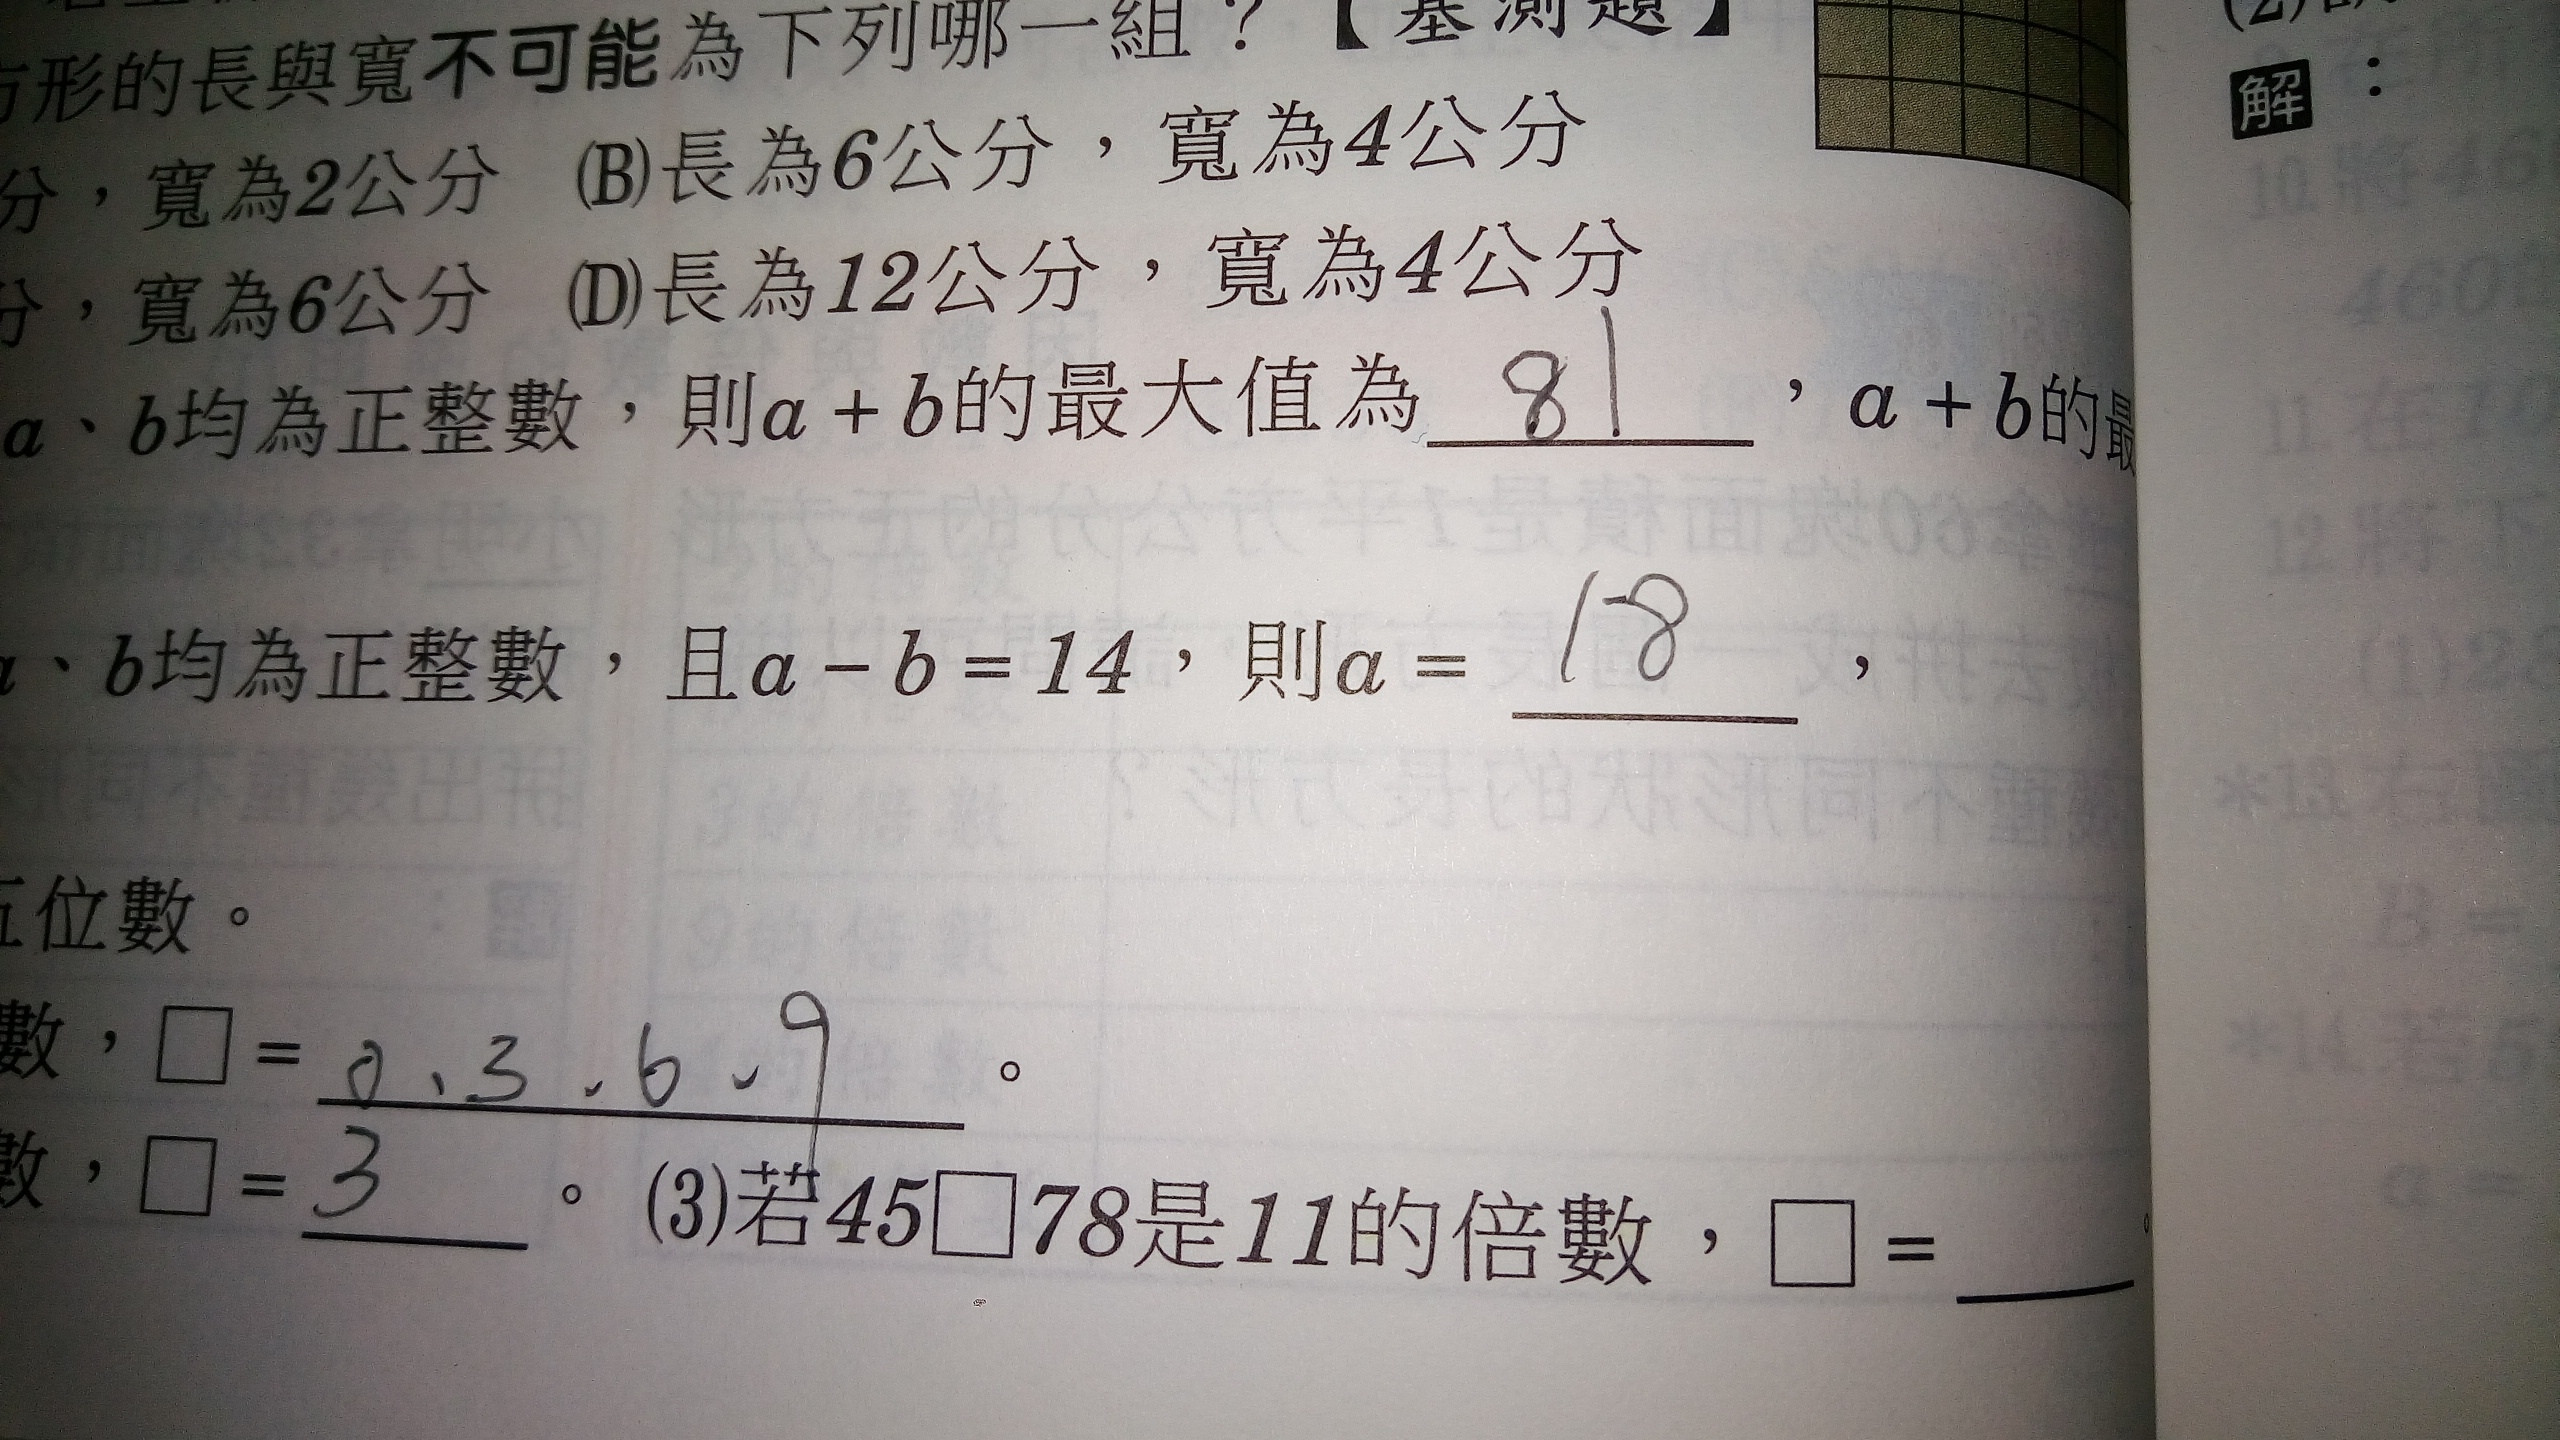 方形的長與寬不可能為下列哪一組？【基測題】
分，寬為2公分 (B)長為6公分，寬為4公分
分，寬為6公分 (D)長為12公分，寬為4公分
a、b均為正整數，則a + b的最大值為 81 ，a + b的最
a、b均為正整數，且a - b = 14，則a = 18 ，
五位數。
數，□ = 0、3、6、9 。
數，□ = 3 。(3)若45□78是11的倍數，□ = 。
解：